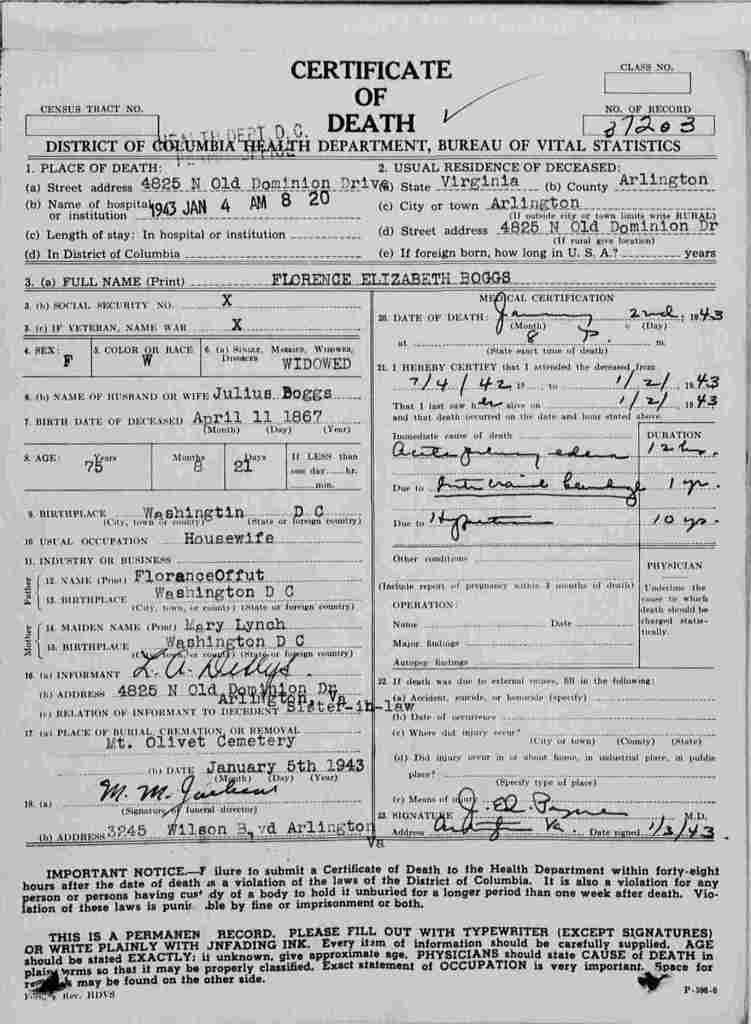 CERTIFICATE
OF
DEATH
CLASS NO.
CENSUS TRACT NO.
NO. OF RECORD
37203
HEALTH DEPT D.C.
DISTRICT OF COLUMBIA HEALTH DEPARTMENT, BUREAU OF VITAL STATISTICS
1. PLACE OF DEATH:
(a) Street address 4825 N Old Dominion Drive
(b) Name of hospital or institution
1943 JAN 4 AM 8 20
(c) Length of stay: In hospital or institution
(d) In District of Columbia
2. USUAL RESIDENCE OF DECEASED:
(a) State Virginia (b) County Arlington
(c) City or town Arlington
(If outside city or town limits write RURAL)
(d) Street address 4825 N Old Dominion Dr
(If rural give location)
(e) If foreign born, how long in U. S. A.? years
3. (a) FULL NAME (Print) FLORENCE ELIZABETH BOGGS
3. (b) SOCIAL SECURITY NO. X
3. (c) IF VETERAN, NAME WAR X
4. SEX: F
5. COLOR OR RACE W
6. (a) Single, Married, Widowed, Divorced WIDOWED
6. (b) NAME OF HUSBAND OR WIFE Julius Boggs
7. BIRTH DATE OF DECEASED April 11 1867
(Month) (Day) (Year)
8. AGE: Years 75 Months 8 Days 21 If LESS than one day hr. min.
9. BIRTHPLACE Washingtin D C
(City, town or county) (State or foreign country)
10 USUAL OCCUPATION Housewife
11. INDUSTRY OR BUSINESS
Father
12. NAME (Print) FloranceOffut
13. BIRTHPLACE Washington D C
(City, town, or county) (State or foreign country)
Mother
14. MAIDEN NAME (Print) Mary Lynch
15. BIRTHPLACE Washington D C
(City, town, or county) (State or foreign country)
16. (a) INFORMANT L. A.
(b) ADDRESS 4825 N Old Dominion Dr
Arlington, Va
(c) RELATION OF INFORMANT TO DECEDENT Sister-in-law
17 (a) PLACE OF BURIAL, CREMATION, OR REMOVAL
Mt. Olivet Cemetery
(b) DATE January 5th 1943
(Month) (Day) (Year)
18. (a) M. M.
(Signature of funeral director)
(b) ADDRESS 3245 Wilson B vd Arlington
Va
MEDICAL CERTIFICATION
20. DATE OF DEATH: January 2nd, 1943
(Month) (Day)
at 8 P. m.
(State exact time of death)
21. I HEREBY CERTIFY that I attended the deceased from
7/4/42 19 to 1/2/ 1943
That I last saw her alive on 1/2/ 1943
and that death occurred on the date and hour stated above.
Immediate cause of death
DURATION
Acute pulmonary edema 12 hr.
Due to Intercranial hemorrhage 1 yr.
Due to Hypertension 10 yr.
Other conditions
(Include report of pregnancy within 3 months of death)
OPERATION:
Name Date
Major findings
Autopsy findings
PHYSICIAN
Underline the cause to which death should be charged statistically.
22. If death was due to external causes, fill in the following:
(a) Accident, suicide, or homocide (specify)
(b) Date of occurrence
(c) Where did injury occur?
(City or town) (County) (State)
(d) Did injury occur in or about home, in industrial place, in public
place?
(Specify type of place)
(e) Means of injury
23. SIGNATURE M.D.
Address Arlington Va. Date signed 1/3/43
IMPORTANT NOTICE.—F ilure to submit a Certificate of Death to the Health Department within forty-eight
hours after the date of death is a violation of the laws of the District of Columbia. It is also a violation for any
person or persons having cus dy of a body to hold it unburied for a longer period than one week after death. Vio-
lation of these laws is punis ble by fine or imprisonment or both.
THIS IS A PERMANEN RECORD. PLEASE FILL OUT WITH TYPEWRITER (EXCEPT SIGNATURES)
OR WRITE PLAINLY WITH UNFADING INK. Every item of information should be carefully supplied. AGE
should be stated EXACTLY; if unknown, give approximate age. PHYSICIANS should state CAUSE OF DEATH in
plain terms so that it may be properly classified. Exact statement of OCCUPATION is very important. Space for
may be found on the other side.
Rev. HDVS
P-398-6